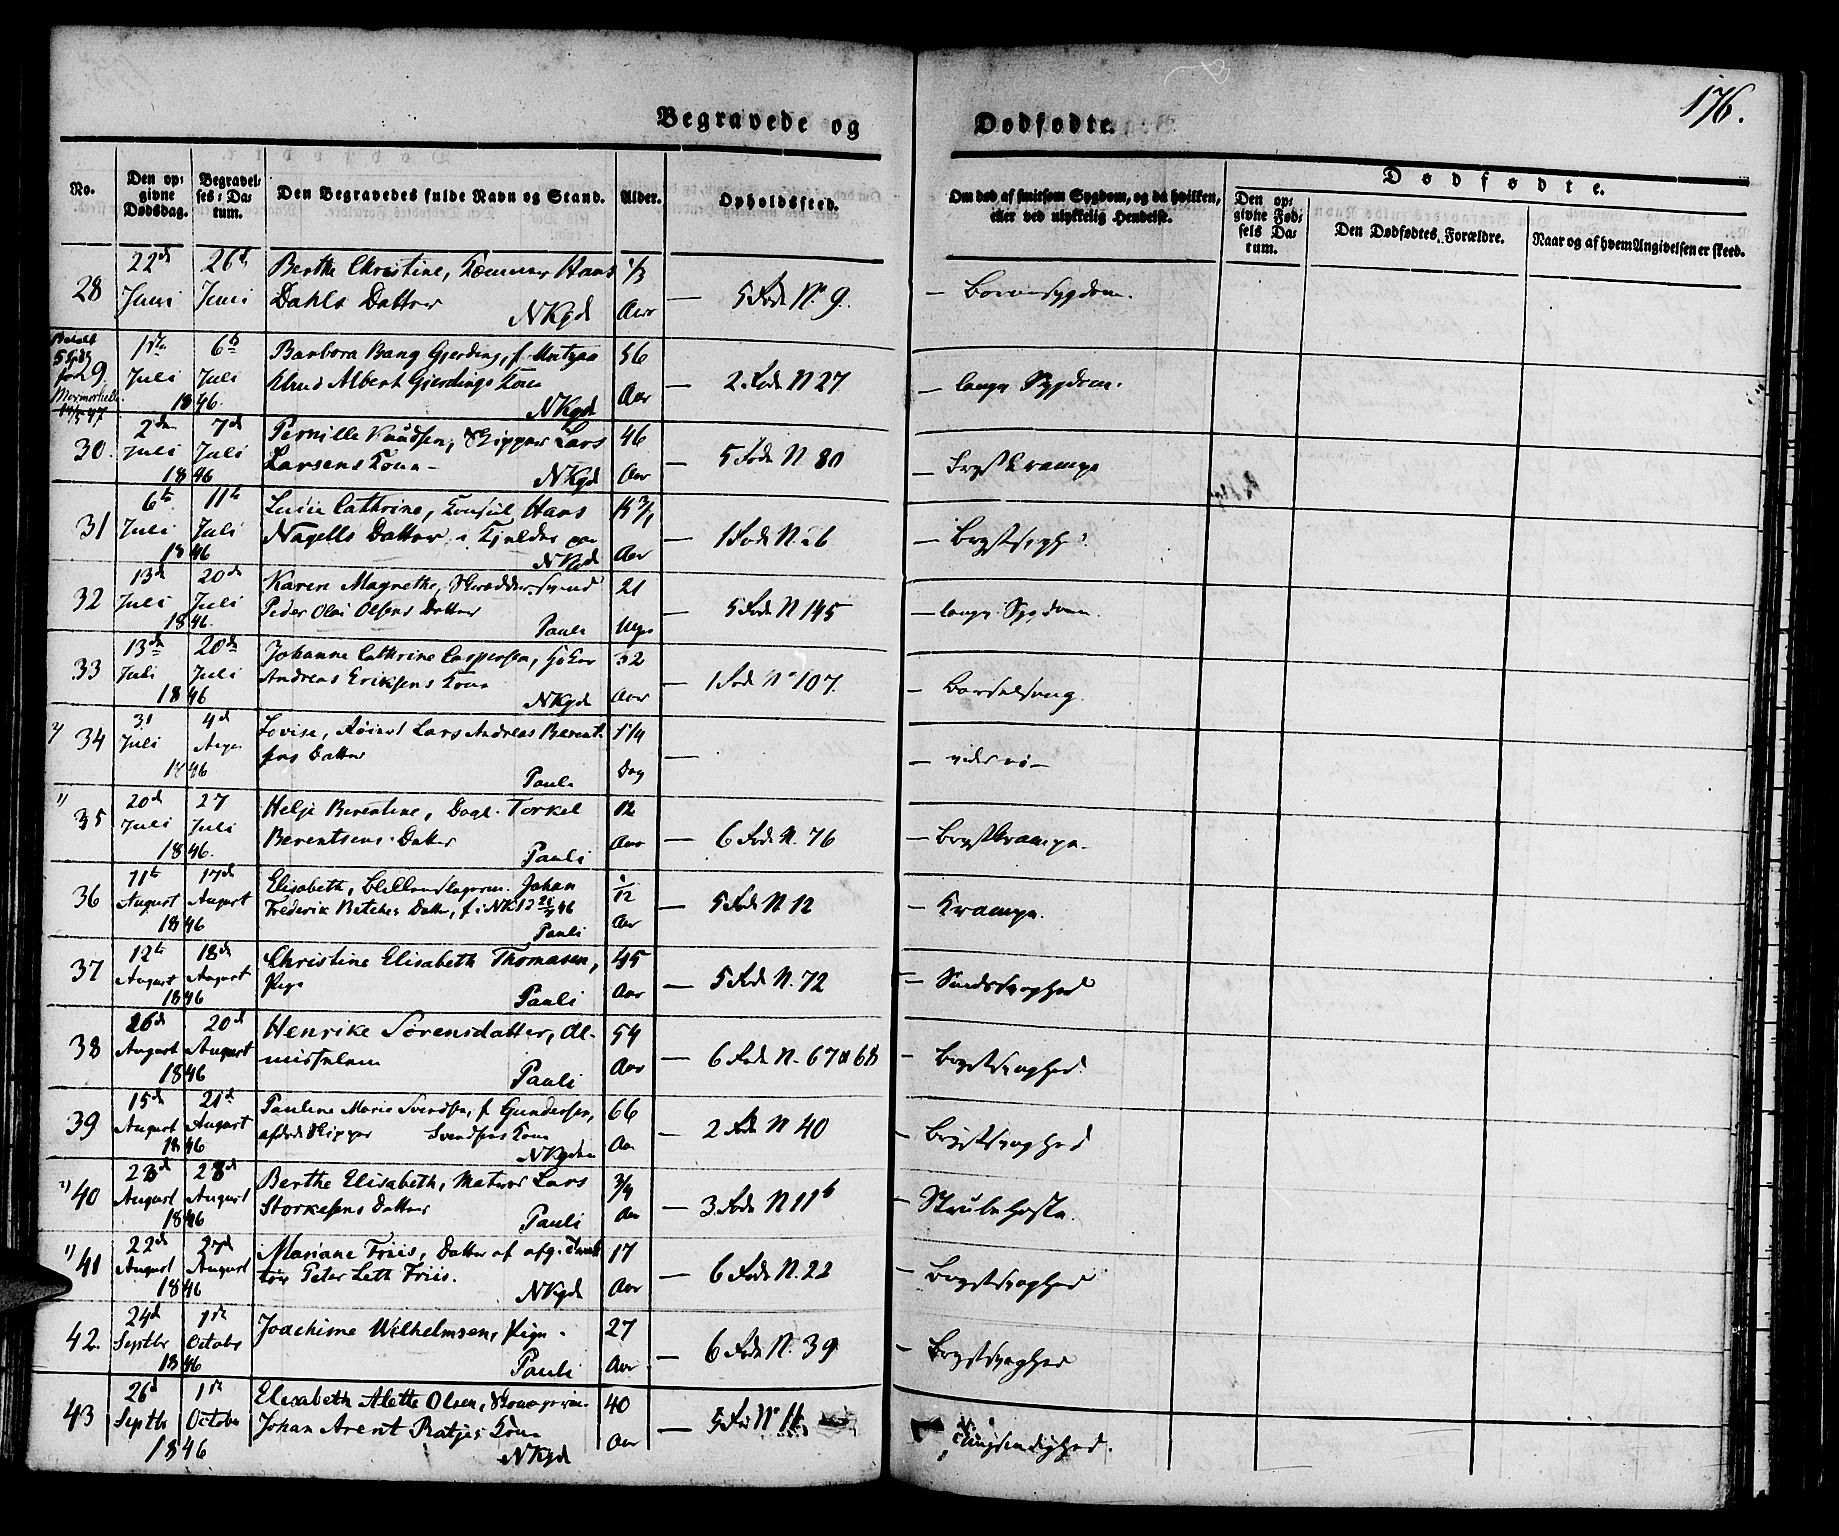 176.
Begravede og Dødfødte.
No.
Den opgivne Dødsdag.
Begravelses-Datum.
Den Begravedes fulde Navn og Stand.
Alder.
Opholdssted.
Om død af smitsom Sygdom, og da hvilken, eller ved ulykkelig Hendelse.
Dødfødte.
Den opgivne Fødsels Datum.
Den Dødfødtes Forældre.
Naar og af hvem Angivelsen er skeed.
28 22de Juni 26de Juni Berthe Christine, Hans 1/3
Dahls Datter NKgd Aar — 5 Rode No 9. —
29 1ste Juli 6te Juli Barbora Bang Gjerding, f. 56
Albert Gjerdings Kone
1846. NKgd Aar — 2. Rode N 27 — langv. Sygdom.
30. 2den Juli 7de Juli Pernille Knudsen, Skipper Lars 46
Larsens Kone —
1846 NKgd Aar — 5 Rode N. 80 — Brystkrampe
31 6te Juli 11te Juli Cathrine, Hans
Nagells Datter
1846 NKgd Aar — 1 Rode N. 26 — Brystsygd.
32 13de Juli 20de Juli Karen Magrethe, Skræddersvend 21
Peder Olai Olsens Datter
1846. Pauli Uger — 5 Rode N 145 — langv. Sygdom.
33 13de Juli 20de Juli Johanne Cathrine Caspersen, 32
Andreas Eriksens Kone
1846 NKgd Aar — 1 Rode No 107. — Barselseng.
34 31 Juli 4de Aug. Lovise, Lars Andreas Berent-
sens Datter
1846 Pauli Dag — —
35 20de Juli 27 Juli Helje Berentine, Dagl. Torkel 12
Berentsens Datter
1846. Pauli Aar — 6 Rode N. 76 — Brystkrampe.
36 11te August 17de August Elisabeth, Johan 1/12
Frederik Betches Datter,
1846 Pauli Aar — 5 Rode N 12 — Krampe.
37 12te August 18de August Christine Elisabeth Thomasen, 45
Pige
1846 Pauli Aar — 5 Rode N. 72 — Sindssvaghed
38 26de August 20de August Henrike Sørensdatter, Al- 54
misselem
1846 Pauli Aar — 6 Rode N. 67 a 68 — Brystsvaghed.
39 15de August 21de August Pauline Marie Svendsen, f. Gundersen, 66
afdøde Skipper Svendsens Kone
1846 NKgden Aar — 2 Rode N 40 — Brystsvaghed
40 23de August 28de August Berthe Elisabeth, Matros Lars 3/4
Storkesens Datter
1846 Pauli Aar — 3. Rode N 11 b — Strubehoste.
41 22de August 27de August Mariane Friis, Datter af afg. 17
Peter Leth Friis.
1846 NKgd Aar — 6 Rode N. 22 — Brystsvaghed
42. 24de Septbr 1ste October Joachime Wilhelmsen, Pige. 27
1846 Pauli Aar. — 6 Rode N. 39. — Brystsvaghed
43 26de Septbr 1ste October Elisabeth Alette Olsen, 40
Johan Arent Ratjes Kone
1846 NKgd Aar — 5 Rode No 11